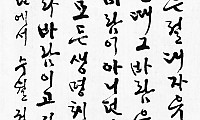 는절대자유
때그바람은
바람이아니던
모든생명체
라바람이고
에서